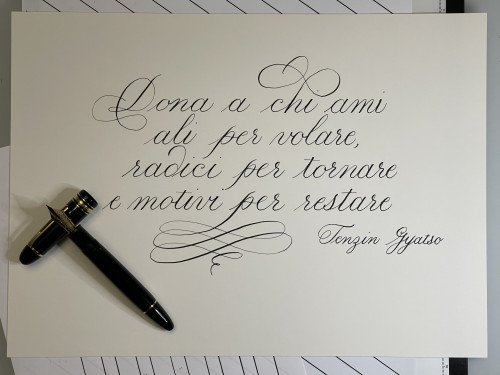 Dona a chi ami
ali per volare,
radici per tornare
e motivi per restare
Tenzin Gyatso